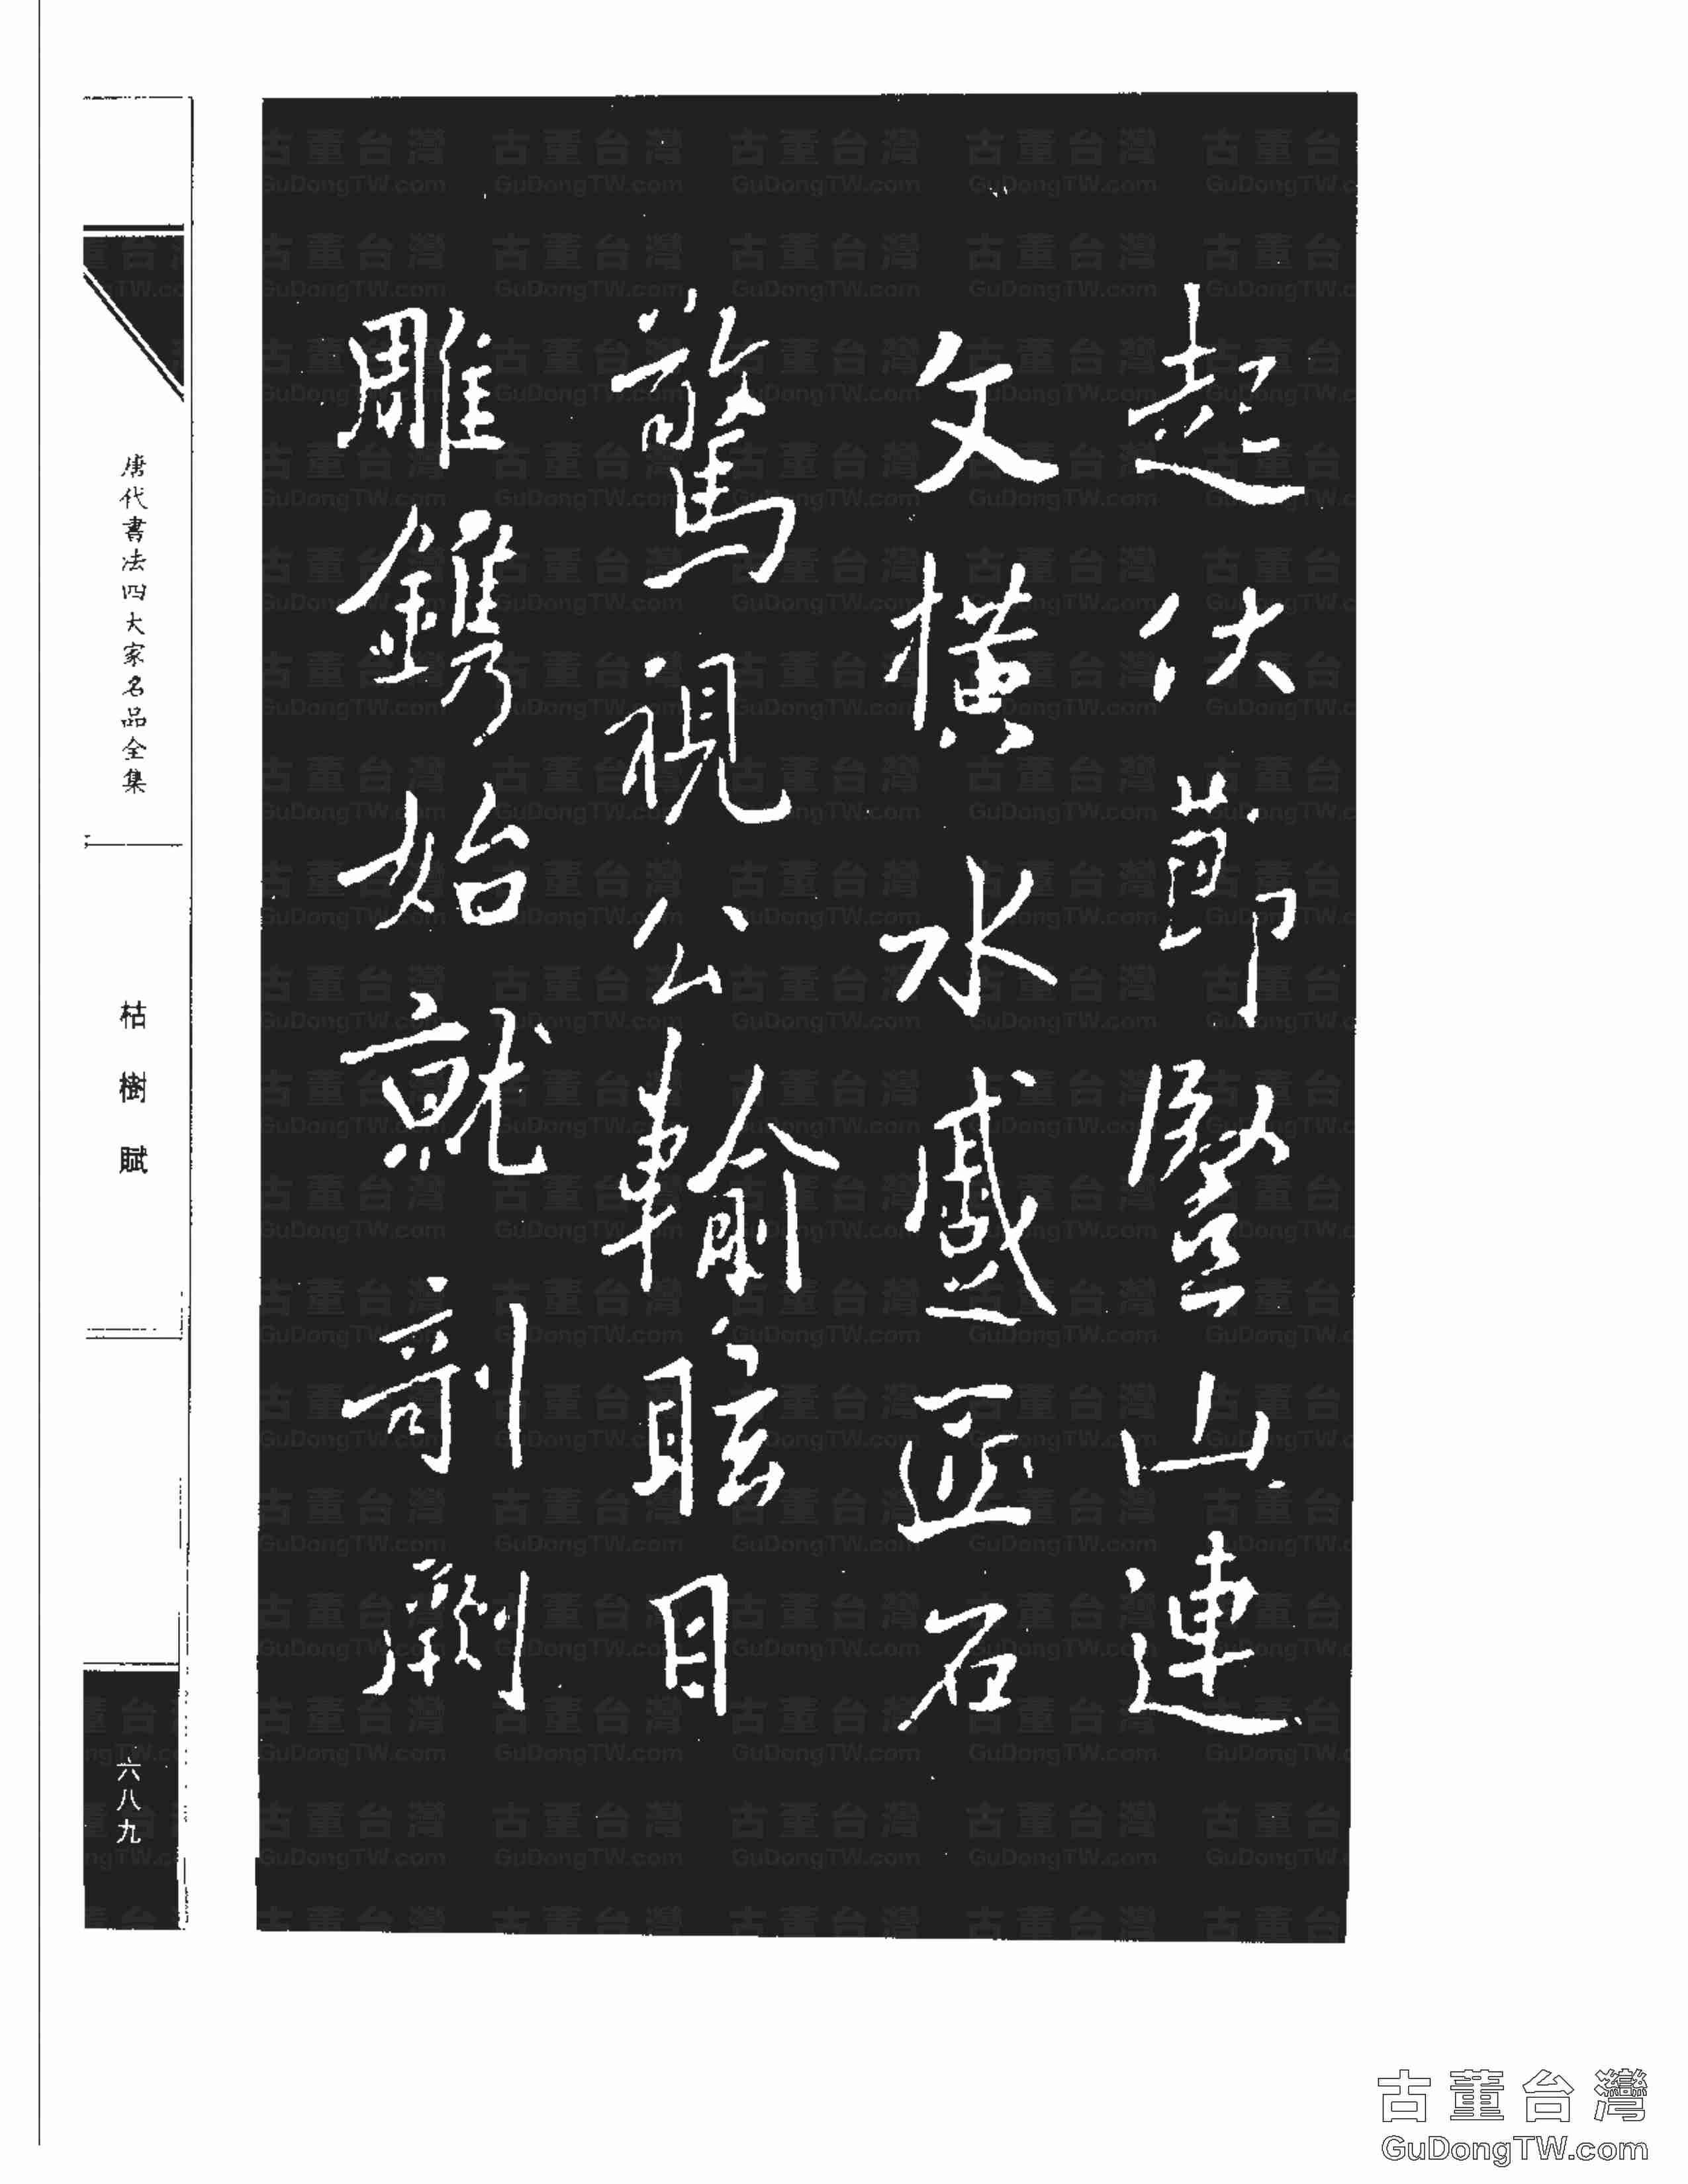 起伏節豎山連
文橫水蹙匠石
驚視公輸眩目
雕鐫始就剞劂
唐代書法四大家名品全集
枯樹賦
六八九
古董台灣
GuDongTW.com